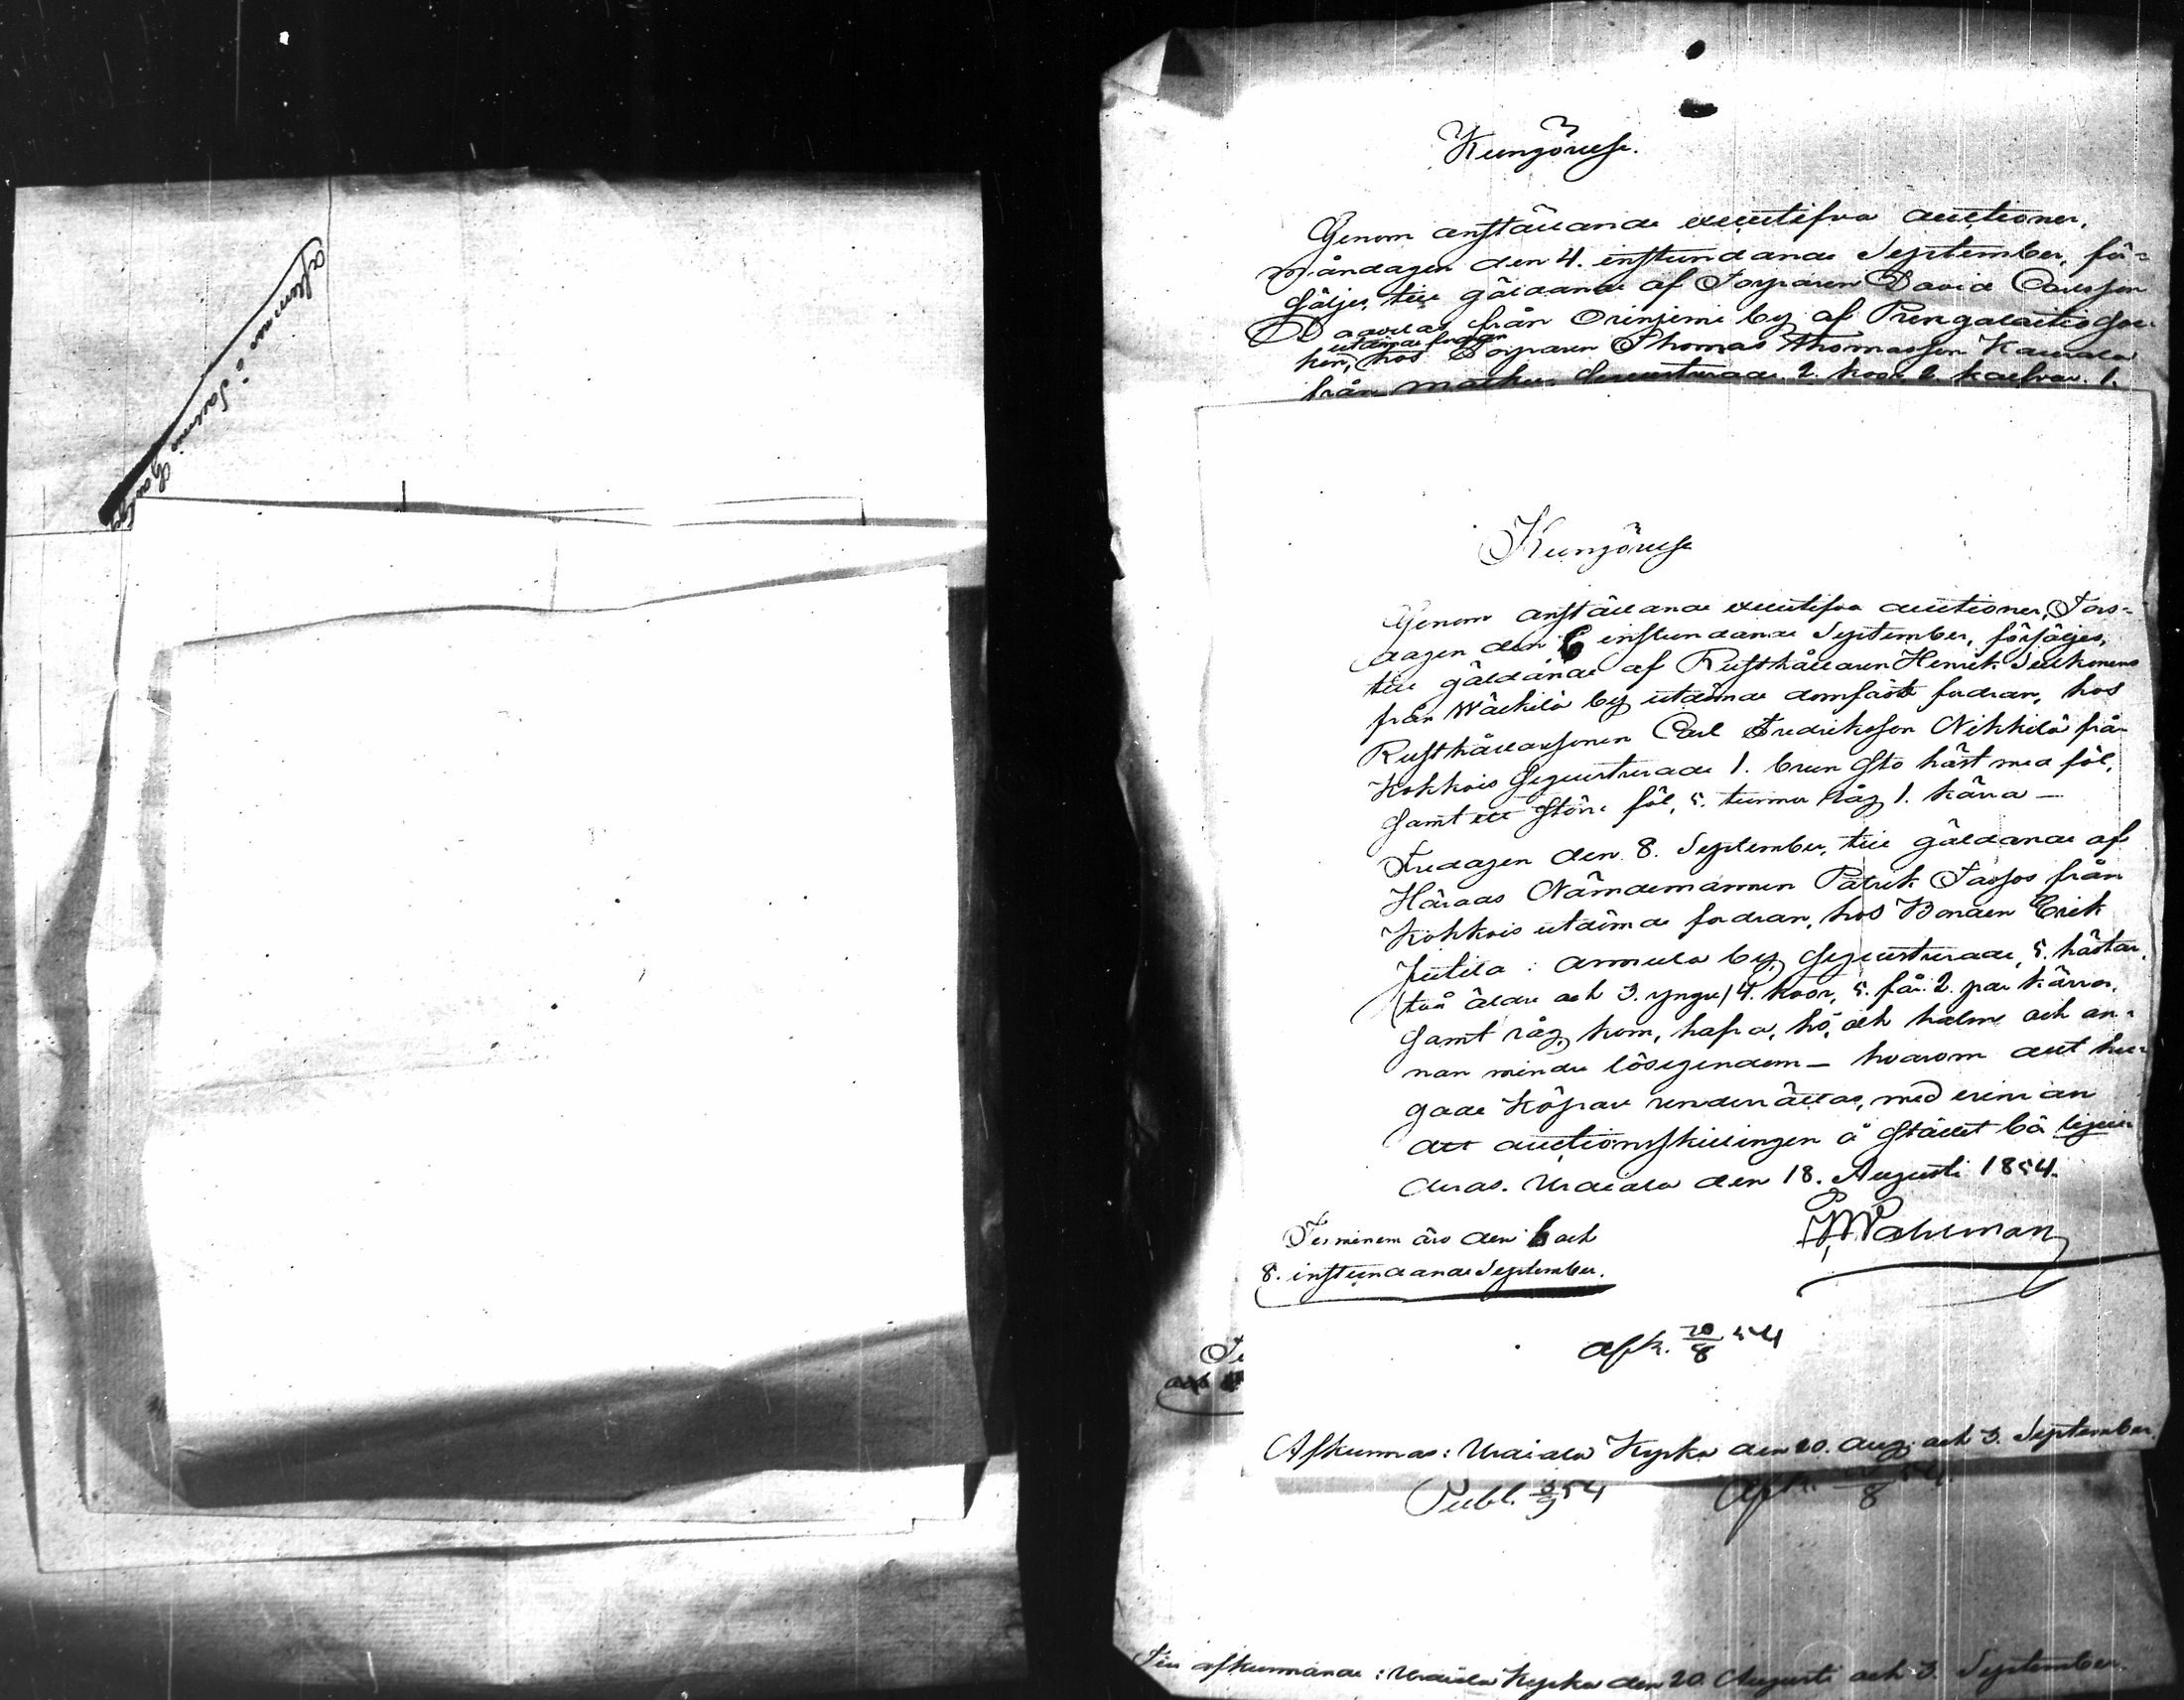 Kungörelse.
Genom anställande executifva auctioner,
måndagen den 4. instundande September, för=
säljes, till gäldande af Torparen David Carlsson
från by af
utdömde fordran
hos Torparen Thomas Thomasson
från 2. koor 2. kalfvar. 1.
Kungörelse
Genom anställande executifva auctioner, Tors=
dagen den 6 instundande September, försäljes,
till gäldande af Rusthållaren Henrik
från Wäkilä by utdömde domfäste fordran, hos
Rusthållaresonen Carl Fredriksson Nikkilä från
Kokkois Sequestrerade 1. brun sto häst med föl,
samt ett större föl, 5. tunnor råg 1. kärra —
Fredagen den 8. September, till gäldande af
Härads Nämdemannen Patrik från
Kokkois utdömde fordran, hos Bonden Erik
Jutila i Annula by, Sequestrerade, 5. hästar,
(två äldre och 3. yngre) 4. koor, 5. får. 2. par kärror,
samt råg, korn, hafra, hö, och halm och an=
nan mindre lösegendom — hvarom det hu=
gade Köpare underrättas, med erinran
att auctionsskillingen å stället bör liqui
deras. Urdiala den 18. Augusti 1854.
Terminen ärо den 6 och
8. instundande September.
afk. 20/8 54
Afkunnas i Urdiala Kyrka den 20. aug. och 3. September.
Publ. 3/9 54
Afk. 20/8 54
Till afkunnande i Urdiala Kyrka den 20. Augusti och 3. September.